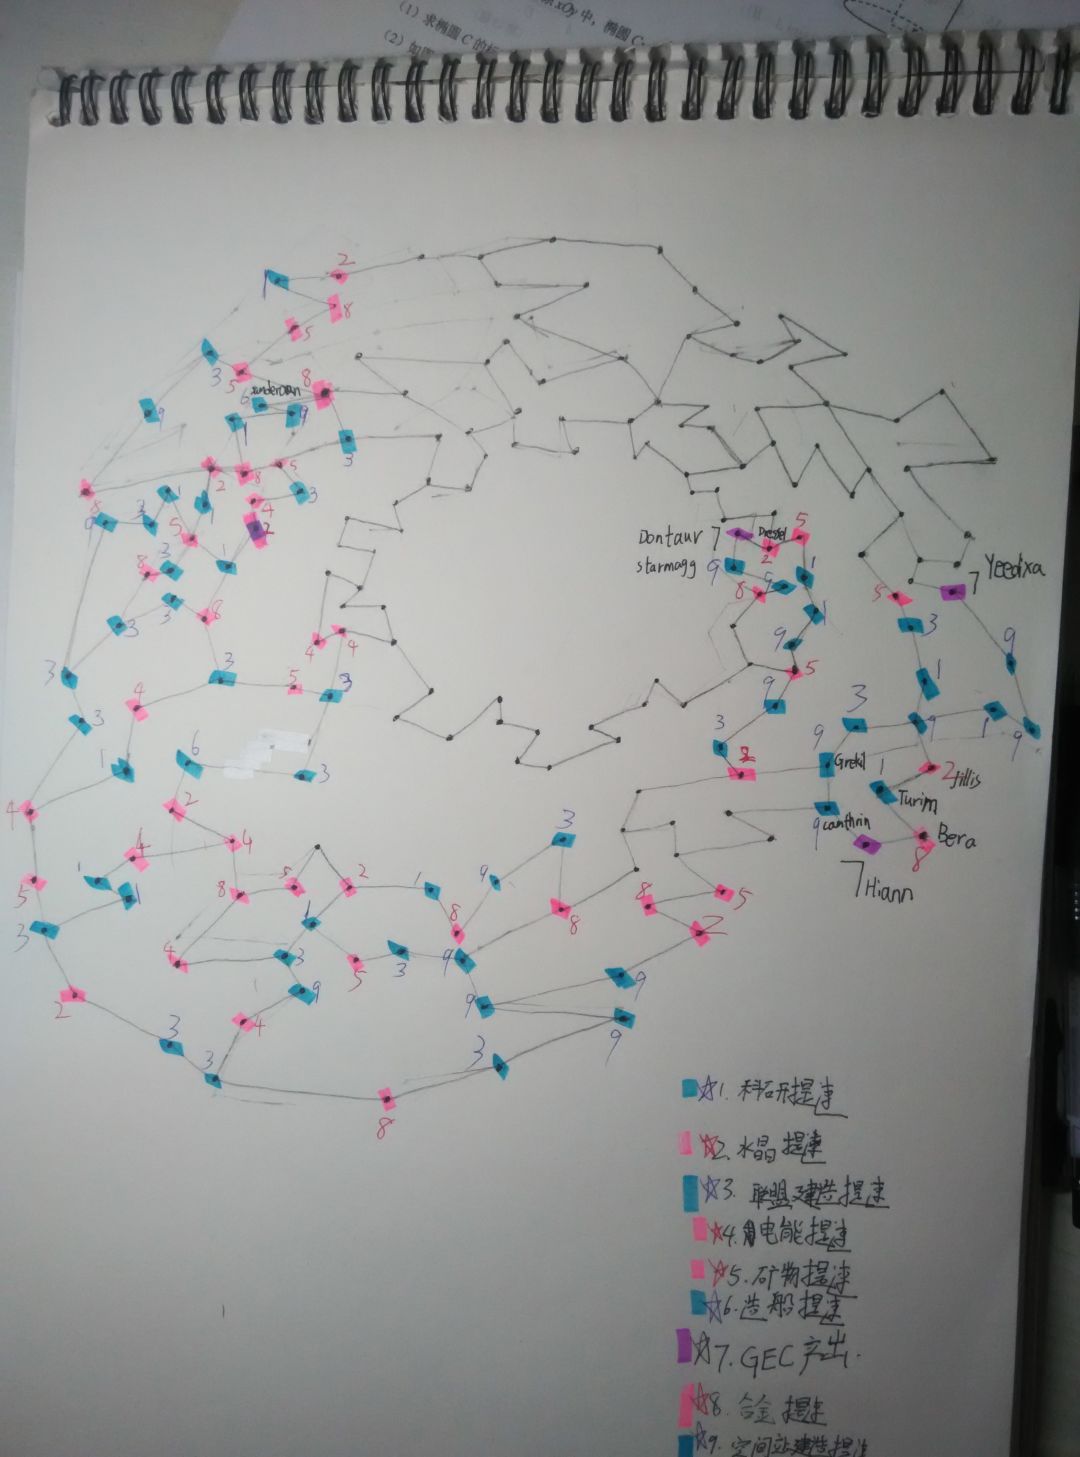 (1) 求椭圆 C 的标
(2) 如图
xOy 中，椭圆 C：
1
2
8
5
3
5
9
6
underoan
8
9
1
3
8
2
8
5
3
4
2
9
3
1
1
5
3
1
8
3
3
8
3
3
4
3
5
3
4
4
3
1
6
3
4
2
4
4
5
1
1
3
8
5
2
1
9
3
8
8
1
4
3
5
3
9
9
4
2
3
3
9
9
9
3
8
8
5
2
Dontaur 7
Dressel
5
2
starmagg 9
9
1
8
1
9
5
9
3
2
Yeedixa
7
5
3
9
1
3
9
9
1
9
Grekil
1
2
Jillis
Turim
9
canthrin
Bera
8
7 Hiann
☆1. 科研提速
☆2. 水晶提速
☆3. 联盟建造提速
☆4. 电能提速
☆5. 矿物提速
☆6. 造船提速
☆7. GEC 产出.
☆8. 合金提速
☆9. 空间站建造提速